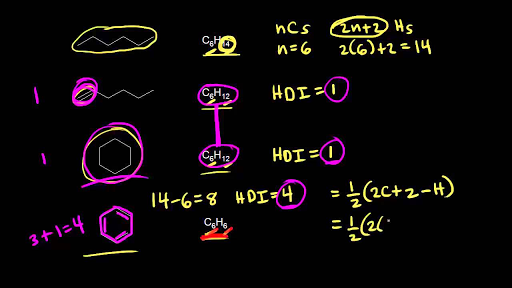 C₆H₁₄ nCs 2n+2 Hs
n=6 2(6)+2=14
1 C₆H₁₂ HDI = 1
1 C₆H₁₂ HDI = 1
14-6=8 HDI=4 = ½(2C+2-H)
3+1=4 C₆H₆ = ½(2(